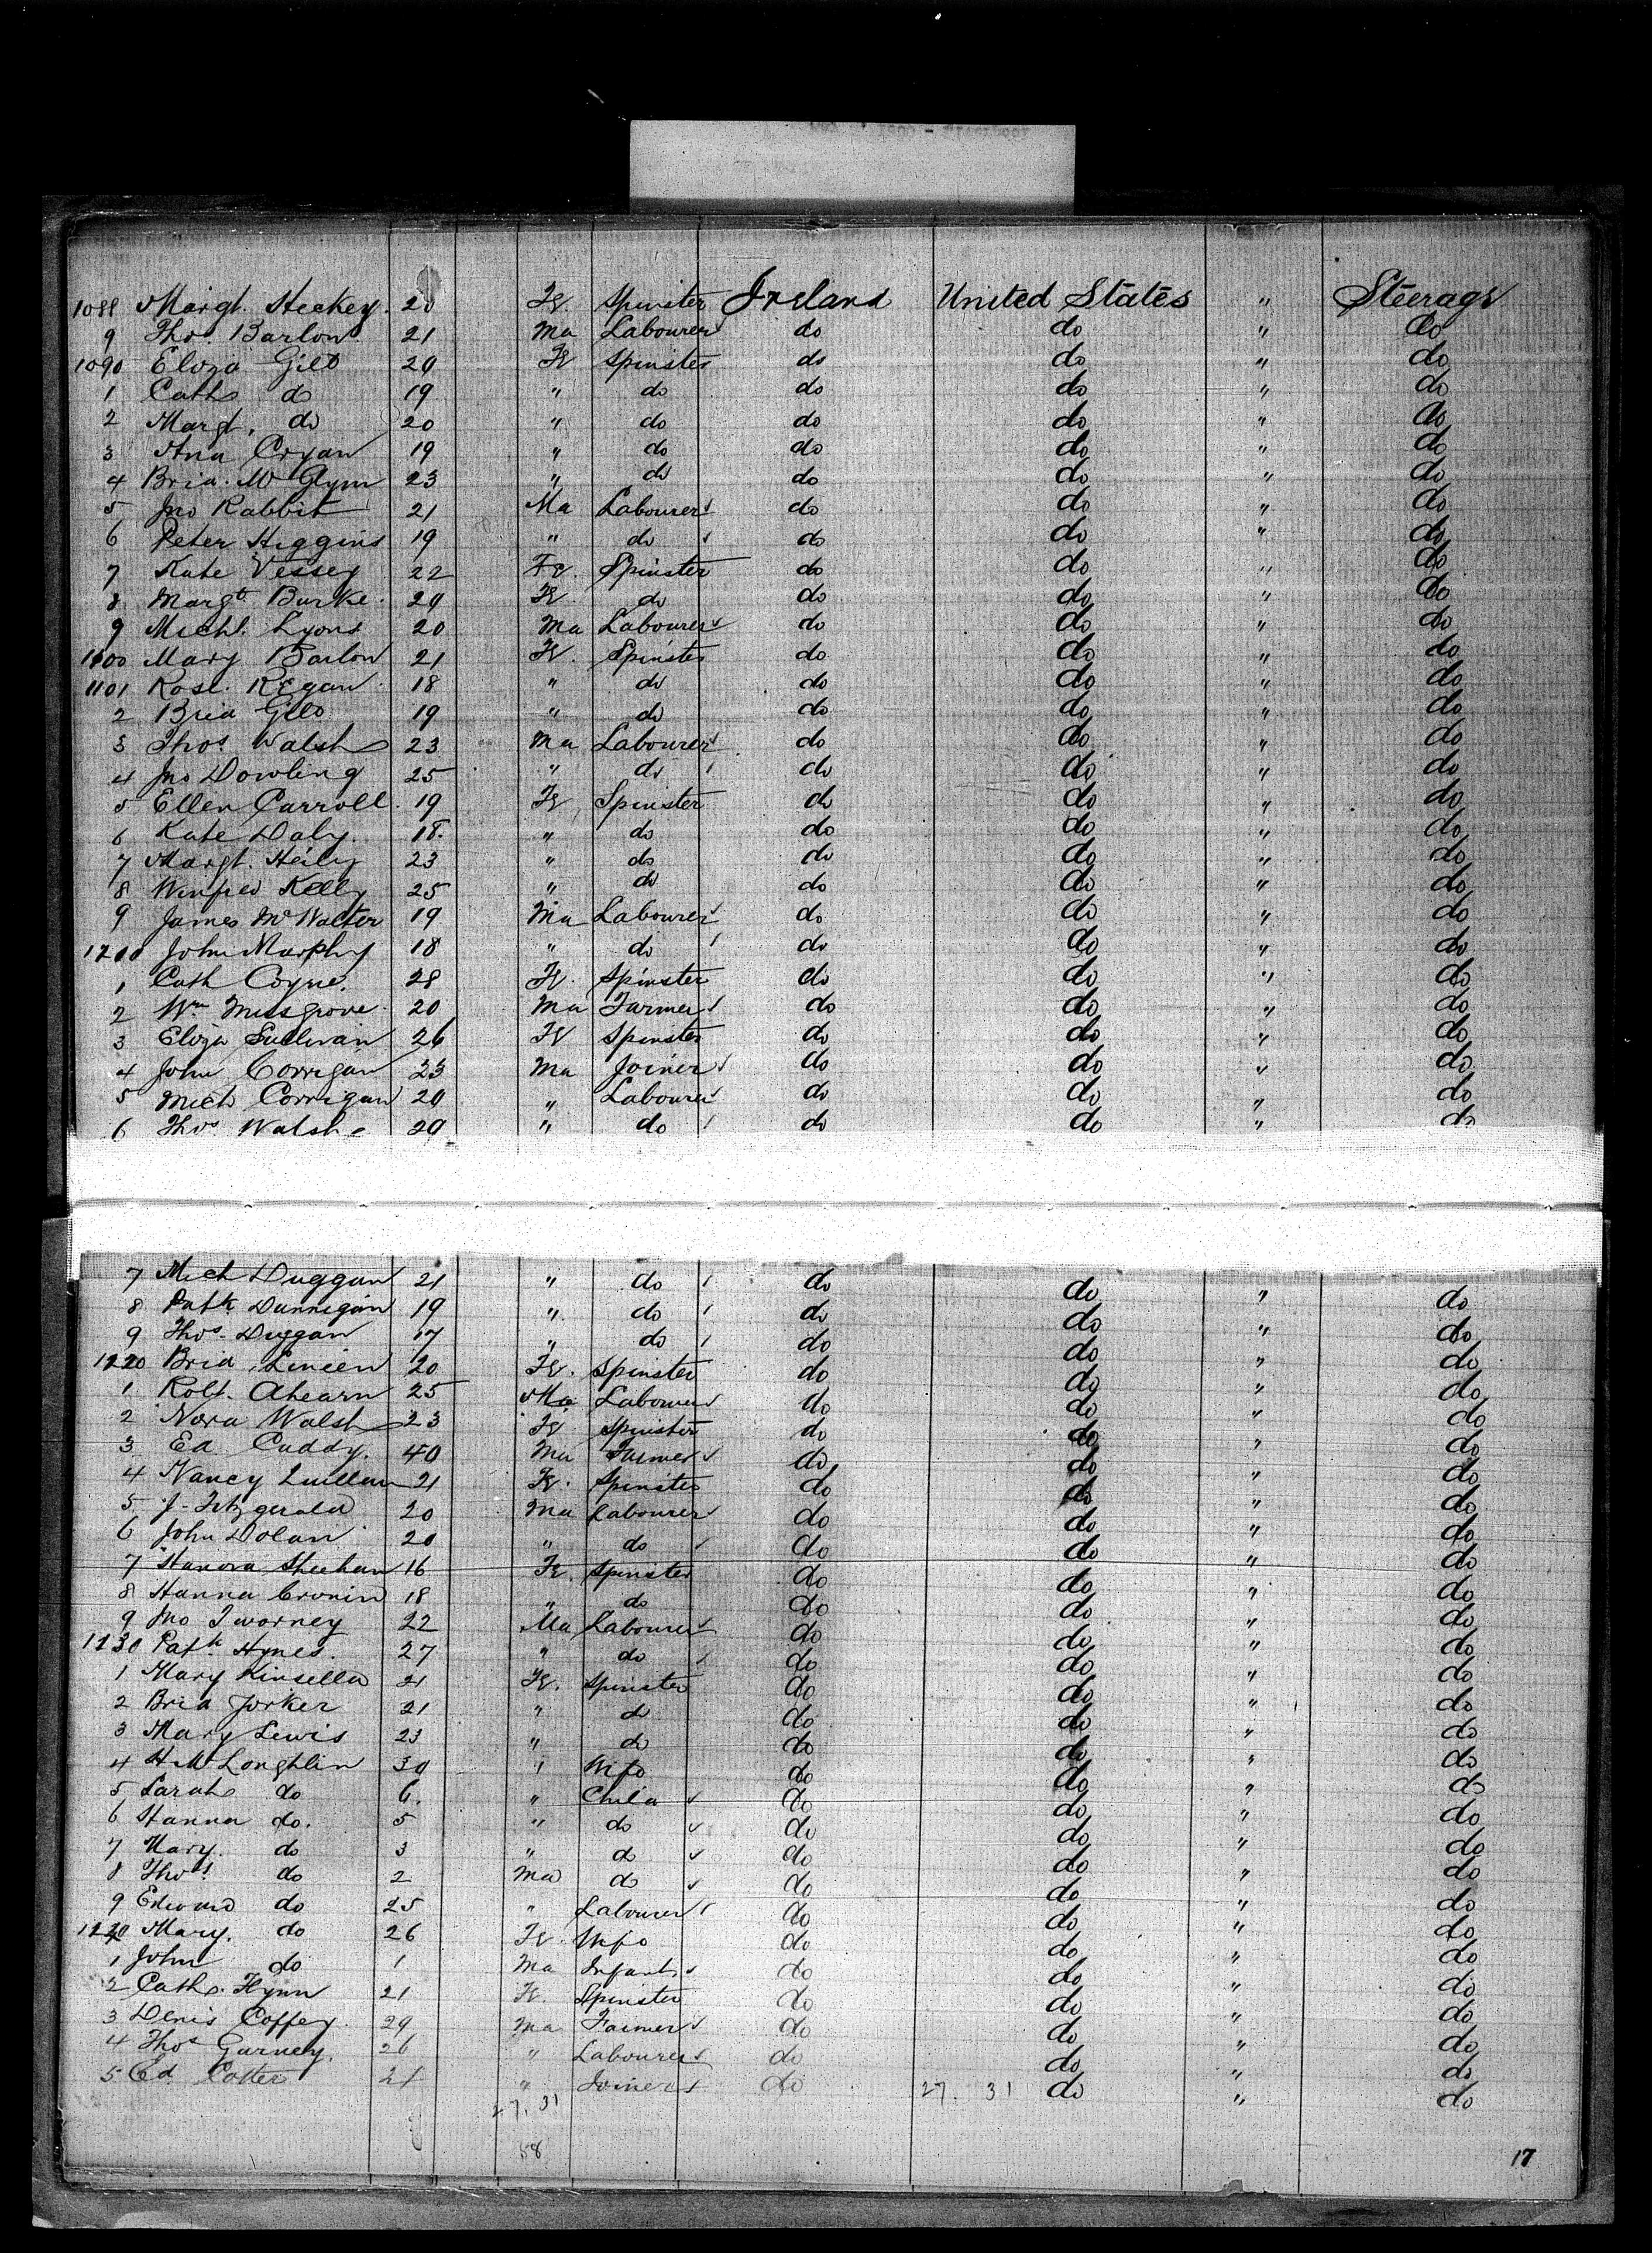 1088 Margt. Heckey. 20 Fe. Spinster Ireland United States " Steerage
9 Thos. Barlow 21 Ma Labourer do do " do
1090 Eliza Gill 20 Fe Spinster do do " do
1 Cath do 19 " do do do " do
2 Margt. do 20 " do do do " do
3 Ana Cryan 19 " do do do " do
4 Brid. McGlynn 23 " do do do " do
5 Jno Rabbit 21 Ma Labourer do do " do
6 Peter Higgins 19 " do do do " do
7 Kate Vessey 22 Fe. Spinster do do " do
8 Margt. Burke 20 Fe. do do do " do
9 Michl. Lyons 20 Ma Labourer do do " do
1100 Mary Barlow 21 Fe. Spinster do do " do
1101 Rose. Regan 18 " do do do " do
2 Brid Gill 19 " do do do " do
3 Thos Walsh 23 Ma Labourer do do " do
4 Jno Dowling 25 " do do do " do
5 Ellen Carroll. 19 Fe Spinster do do " do
6 Kate Daly. 18. " do do do " do
7 Margt. Heily 23 " do do do " do
8 Winfred Kelly 25 " do do do " do
9 James McWalter 19 Ma Labourer do do " do
1210 John Murphy 18 " do do do " do
1 Cath Coyne. 28 Fe. Spinster do do " do
2 Wm Mussgrove 20 Ma Farmer do do " do
3 Eliza Sullivan 26 Fe Spinster do do " do
4 John Corrigan 23 Ma Joiner do do " do
5 Mich Corrigan 20 " Labourer do do " do
6 Thos Walsh 20 " do do do " do
7 Mich Duggan 21 " do do do " do
8 Patk Dunnigan 19 " do do do " do
9 Thos. Duggan 17 " do do do " do
1220 Brid 20 Fe. Spinster do do " do
1 Robt. Ahearn 25 Ma Labourer do do " do
2 Nora Walsh 23 Fe Spinster do do " do
3 Ed Cuddy. 40 Ma Farmer do do " do
4 Nancy 21 Fe. Spinster do do " do
5 J. Fitzgerald 20 Ma Labourer do do " do
6 John Dolan 20 " do do do " do
7 Hanora Sheehan 16 Fe. Spinster do do " do
8 Hanna Cronin 18 " do do do " do
9 Jno Twomey 22 Ma Labourer do do " do
1230 Patk. Hynes. 27 " do do do " do
1 Mary Kinsella 21 Fe. Spinster do do " do
2 Brid 21 " do do do " do
3 Mary Lewis 23 " do do do " do
4 H McLoughlin 30 " Wife do do " do
5 Sarah do 6. " Child do do " do
6 Hanna do. 5 " do do do " do
7 Mary. do 3 " do do do " do
8 Thos. do 2 Ma do do do " do
9 Edward do 25 " Labourer do do " do
1240 Mary. do 26 Fe. Wife do do " do
1 John do 1 Ma Infant do do " do
2 Cath. Flynn 21 Fe. Spinster do do " do
3 Denis Coffey. 29 Ma Farmer do do " do
4 Thos Gurney. 26 " Labourer do do " do
5 Ed. Cotter 21 " Joiner do 27. 31 do " do
27. 31
58
17